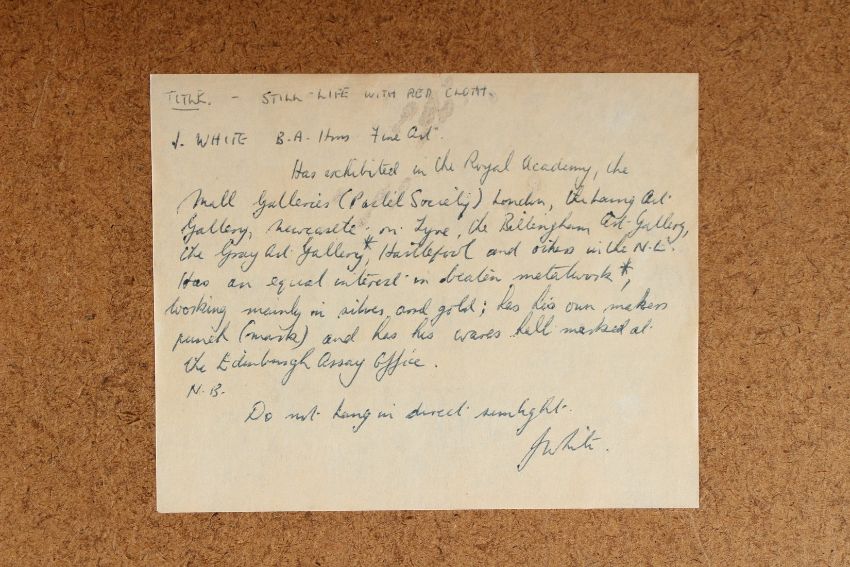 TITLE. - STILL-LIFE WITH RED CLOTH.
J. WHITE B.A. Hons Fine Art.
Has exhibited in the Royal Academy, the
Mall Galleries (Pastel Society) London, the Laing Art
Gallery, Newcastle-on-Tyne, the Billingham Art Gallery,
the Gray Art Gallery*, Hartlepool and others in the N.E.
Has an equal interest in beaten metalwork*,
working mainly in silver and gold; has his own makers
punch (mark) and has his wares hall marked at
the Edinburgh Assay Office.
N.B.
Do not hang in direct sunlight.
JWhite.